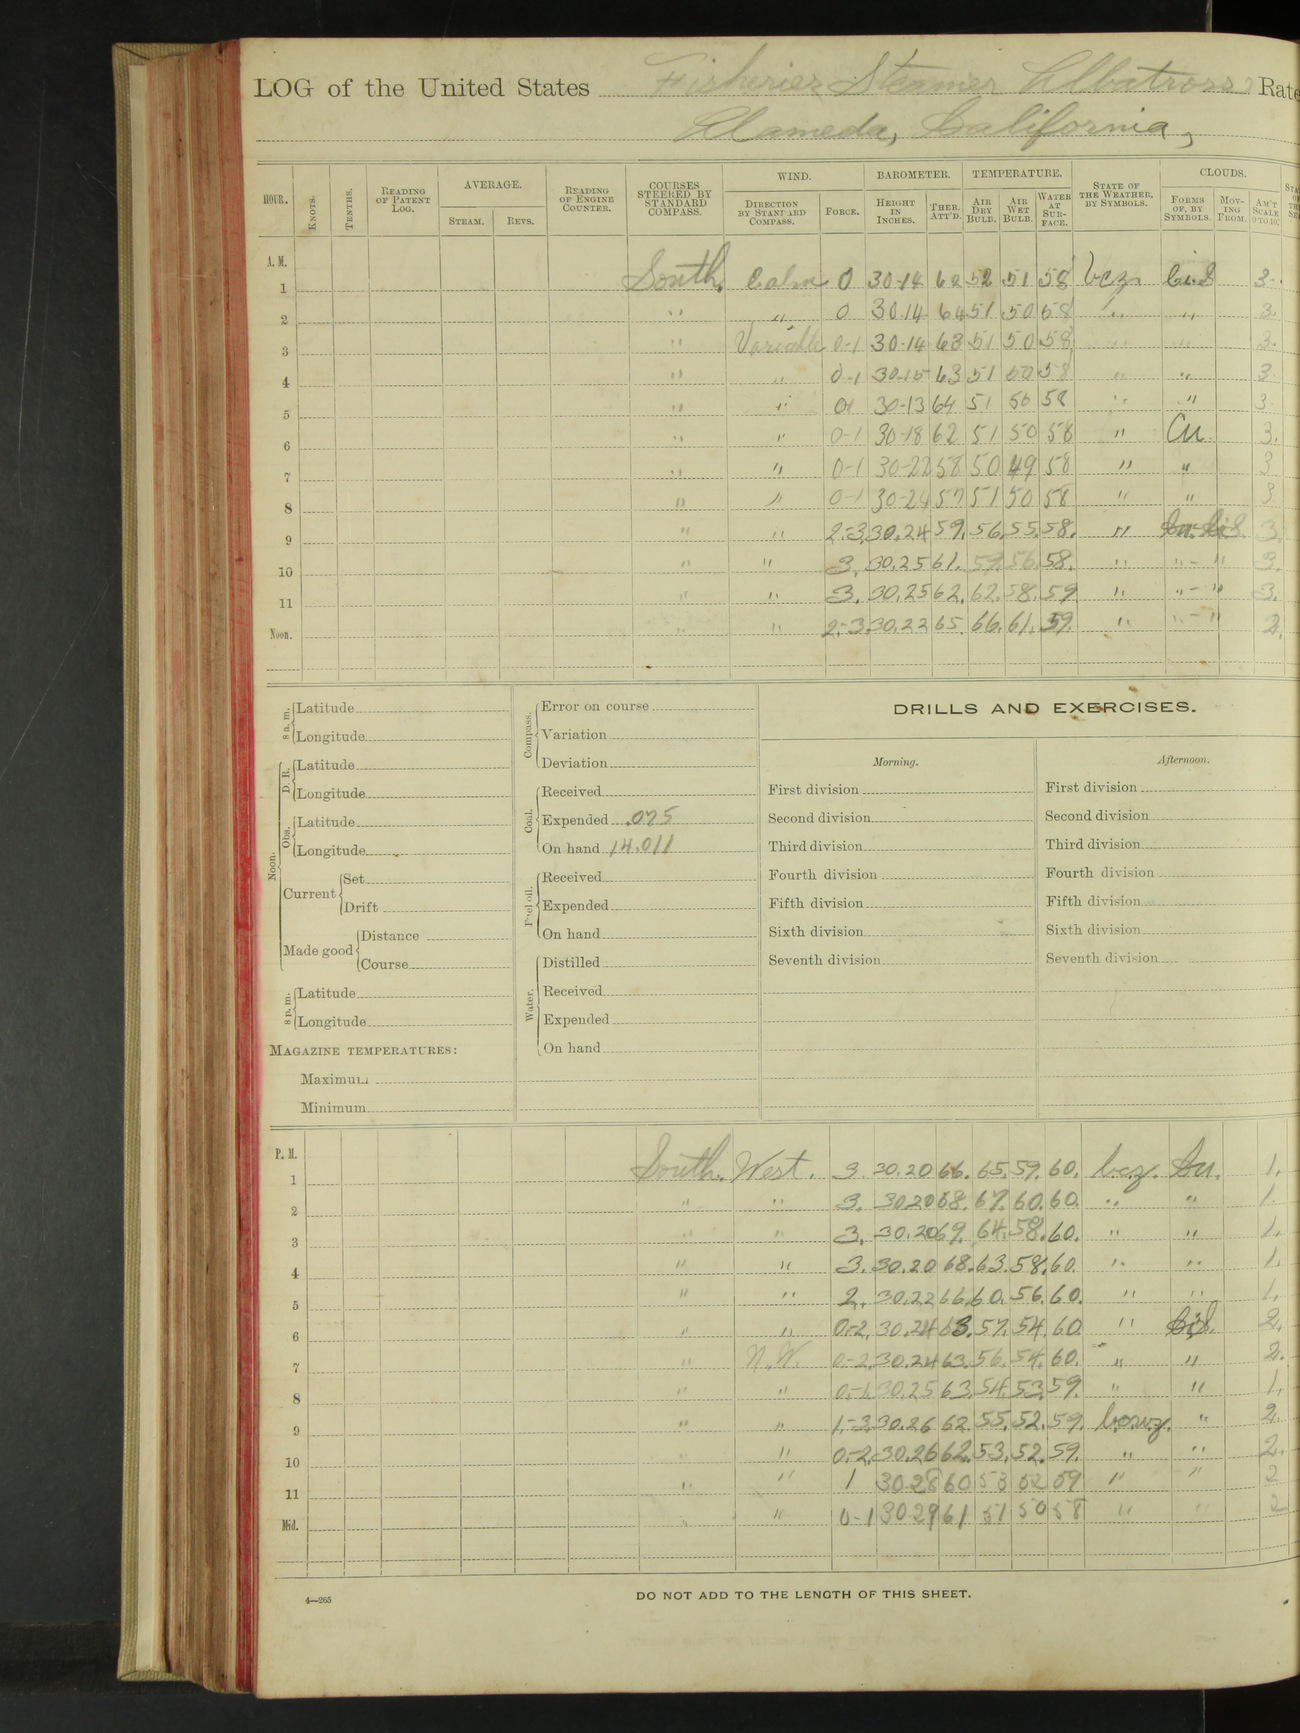 LOG of the United States Fisheries Steamer Albatross, Rate
Alameda, California,
HOUR. KNOTS. TENTHS. READING OF PATENT LOG. AVERAGE. STEAM. REVS. READING OF ENGINE COUNTER. COURSES STEERED BY STANDARD COMPASS. WIND. DIRECTION BY STANDARD COMPASS. FORCE. BAROMETER. HEIGHT IN INCHES. THER. ATT'D. TEMPERATURE. AIR DRY BULB. AIR WET BULB. WATER AT SURFACE. STATE OF THE WEATHER, BY SYMBOLS. CLOUDS. FORMS OF, BY SYMBOLS. MOVING FROM. AM'T SCALE 0 TO 10.
A. M.
1 South. Calm 0 30-14 62 52 51 58 bcz. Ci.S 3.
2 " " 0 30.14 64 51 50 58 " " 3.
3 " Variable 0-1 30-14 63 51 50 58 " " 3.
4 " " 0-1 30-15 63 51 50 58 " " 3
5 " " 01 30-13 64 51 50 58 " " 3
6 " " 0-1 30-18 62 51 50 58 " Cu 3.
7 " " 0-1 30-22 58 50 49 58 " " 3
8 " " 0-1 30-24 57 51 50 58 " " 3
9 " " 2-3. 30.24 59. 56. 55. 58. " Cu.-Ci.S. 3.
10 " " 3. 30.25 61. 59. 56. 58. " "-" 3.
11 " " 3. 30.25 62. 62. 58. 59 " "-" 3.
Noon. " " 2-3. 30.22 65. 66. 61. 59. " "-" 2.
8 a. m. Latitude
Longitude
Noon. D. R. Latitude
Longitude
Obs. Latitude
Longitude
Current Set
Drift
Made good Distance
Course
8 p. m. Latitude
Longitude
MAGAZINE TEMPERATURES:
Maximum
Minimum
Compass. Error on course
Variation
Deviation
Coal. Received
Expended .075
On hand 14.011
Fuel oil. Received
Expended
On hand
Water. Distilled
Received
Expended
On hand
DRILLS AND EXERCISES.
Morning. Afternoon.
First division First division
Second division Second division
Third division Third division
Fourth division Fourth division
Fifth division Fifth division
Sixth division Sixth division
Seventh division Seventh division
P. M.
1 South. West. 3. 30.20 66. 65. 59. 60. bcz. Cu. 1.
2 " " 3. 30.20 68. 67. 60. 60. " " 1.
3 " " 3. 30.20 69. 64. 58. 60. " " 1.
4 " " 3. 30.20 68. 63. 58. 60. " " 1.
5 " " 2. 30.22 66. 60. 56. 60. " " 1.
6 " " 0-2. 30.24 63. 57. 54. 60. " Ci.S. 2.
7 " N.W. 0-2. 30.24 63. 56. 54. 60. " " 2.
8 " " 0-1. 30.25 63. 54. 53. 59. " " 1.
9 " " 1-3. 30.26 62. 55. 52. 59. " 2.
10 " " 0-2. 30.26 62. 53. 52. 59. " " 2.
11 " " 1 30-28 60 53 52 59 " " 2
Mid. " " 0-1 30-29 61 51 50 58 " " 2
4—265
DO NOT ADD TO THE LENGTH OF THIS SHEET.